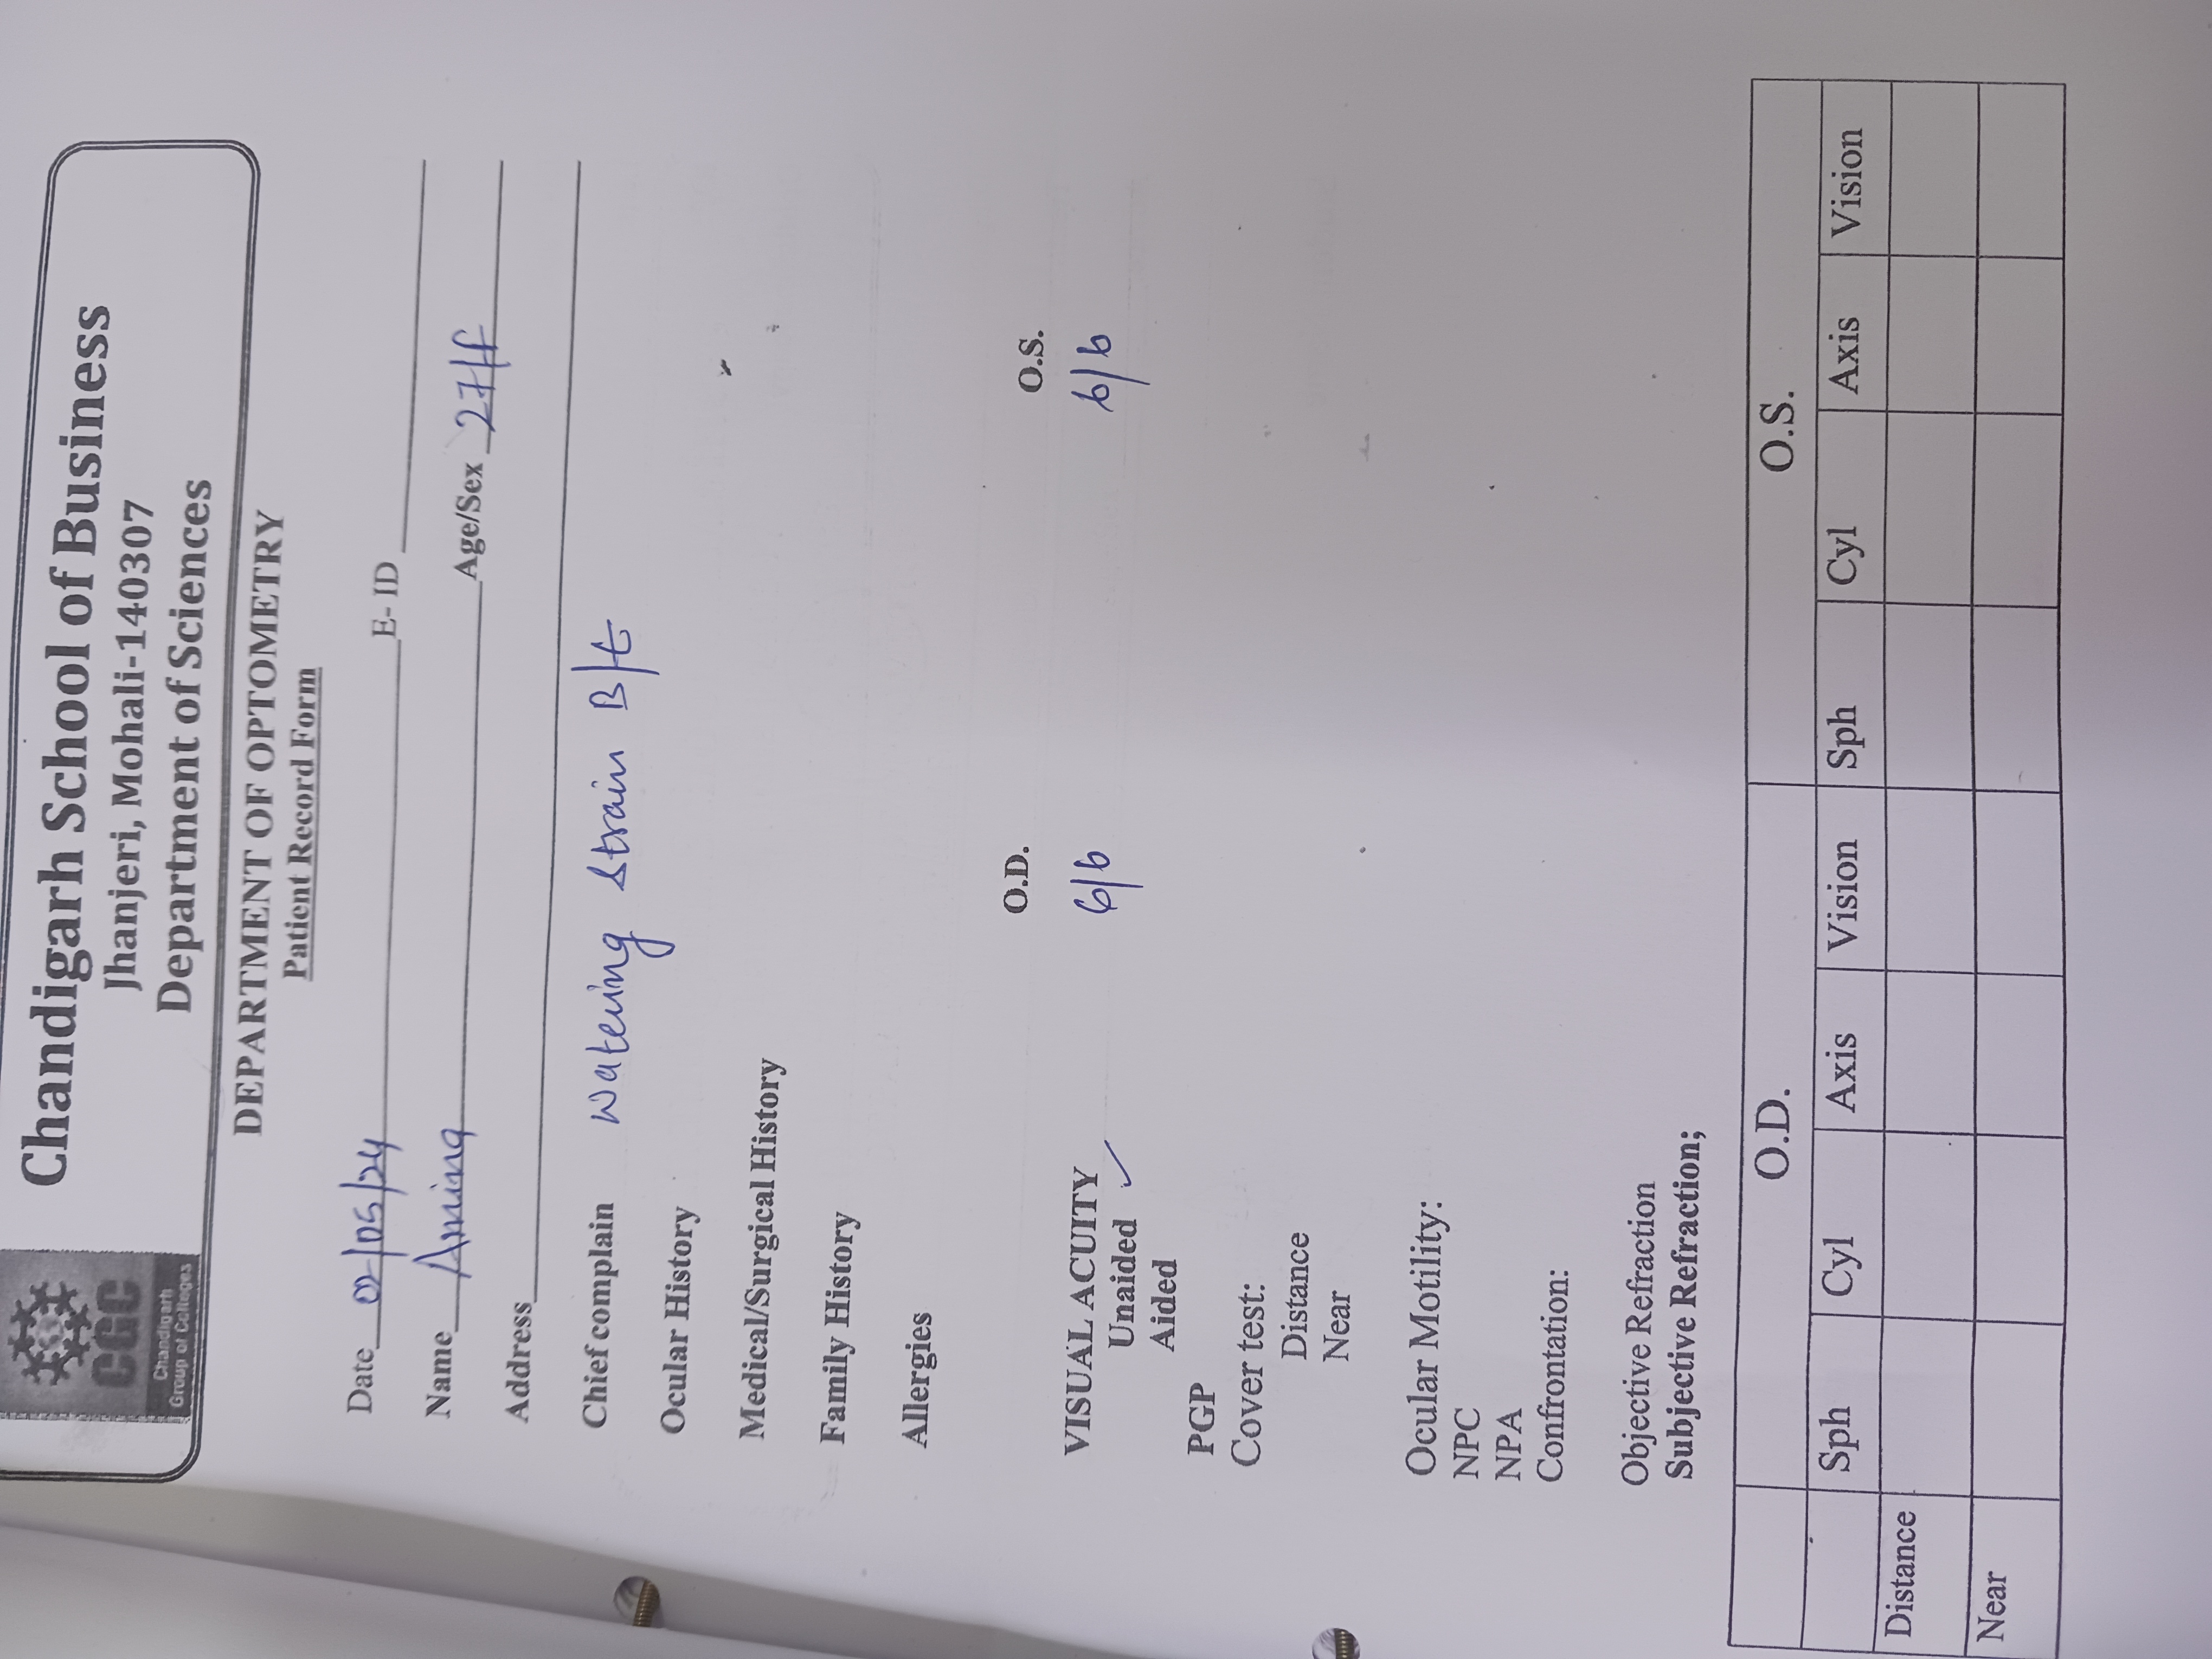 CGC
Chandigarh
Group of Colleges
Chandigarh School of Business
Jhanjeri, Mohali-140307
Department of Sciences
DEPARTMENT OF OPTOMETRY
Patient Record Form
Date 02/05/24 E- ID
Name Amina Age/Sex 27/f
Address
Chief complain Watering Strain B/E
Ocular History
Medical/Surgical History
Family History
Allergies
O.D. O.S.
VISUAL ACUITY 6/6 6/6
Unaided ✓
Aided
PGP
Cover test:
Distance
Near
Ocular Motility:
NPC
NPA
Confrontation:
Objective Refraction
Subjective Refraction;
O.D. O.S.
Sph Cyl Axis Vision Sph Cyl Axis Vision
Distance
Near